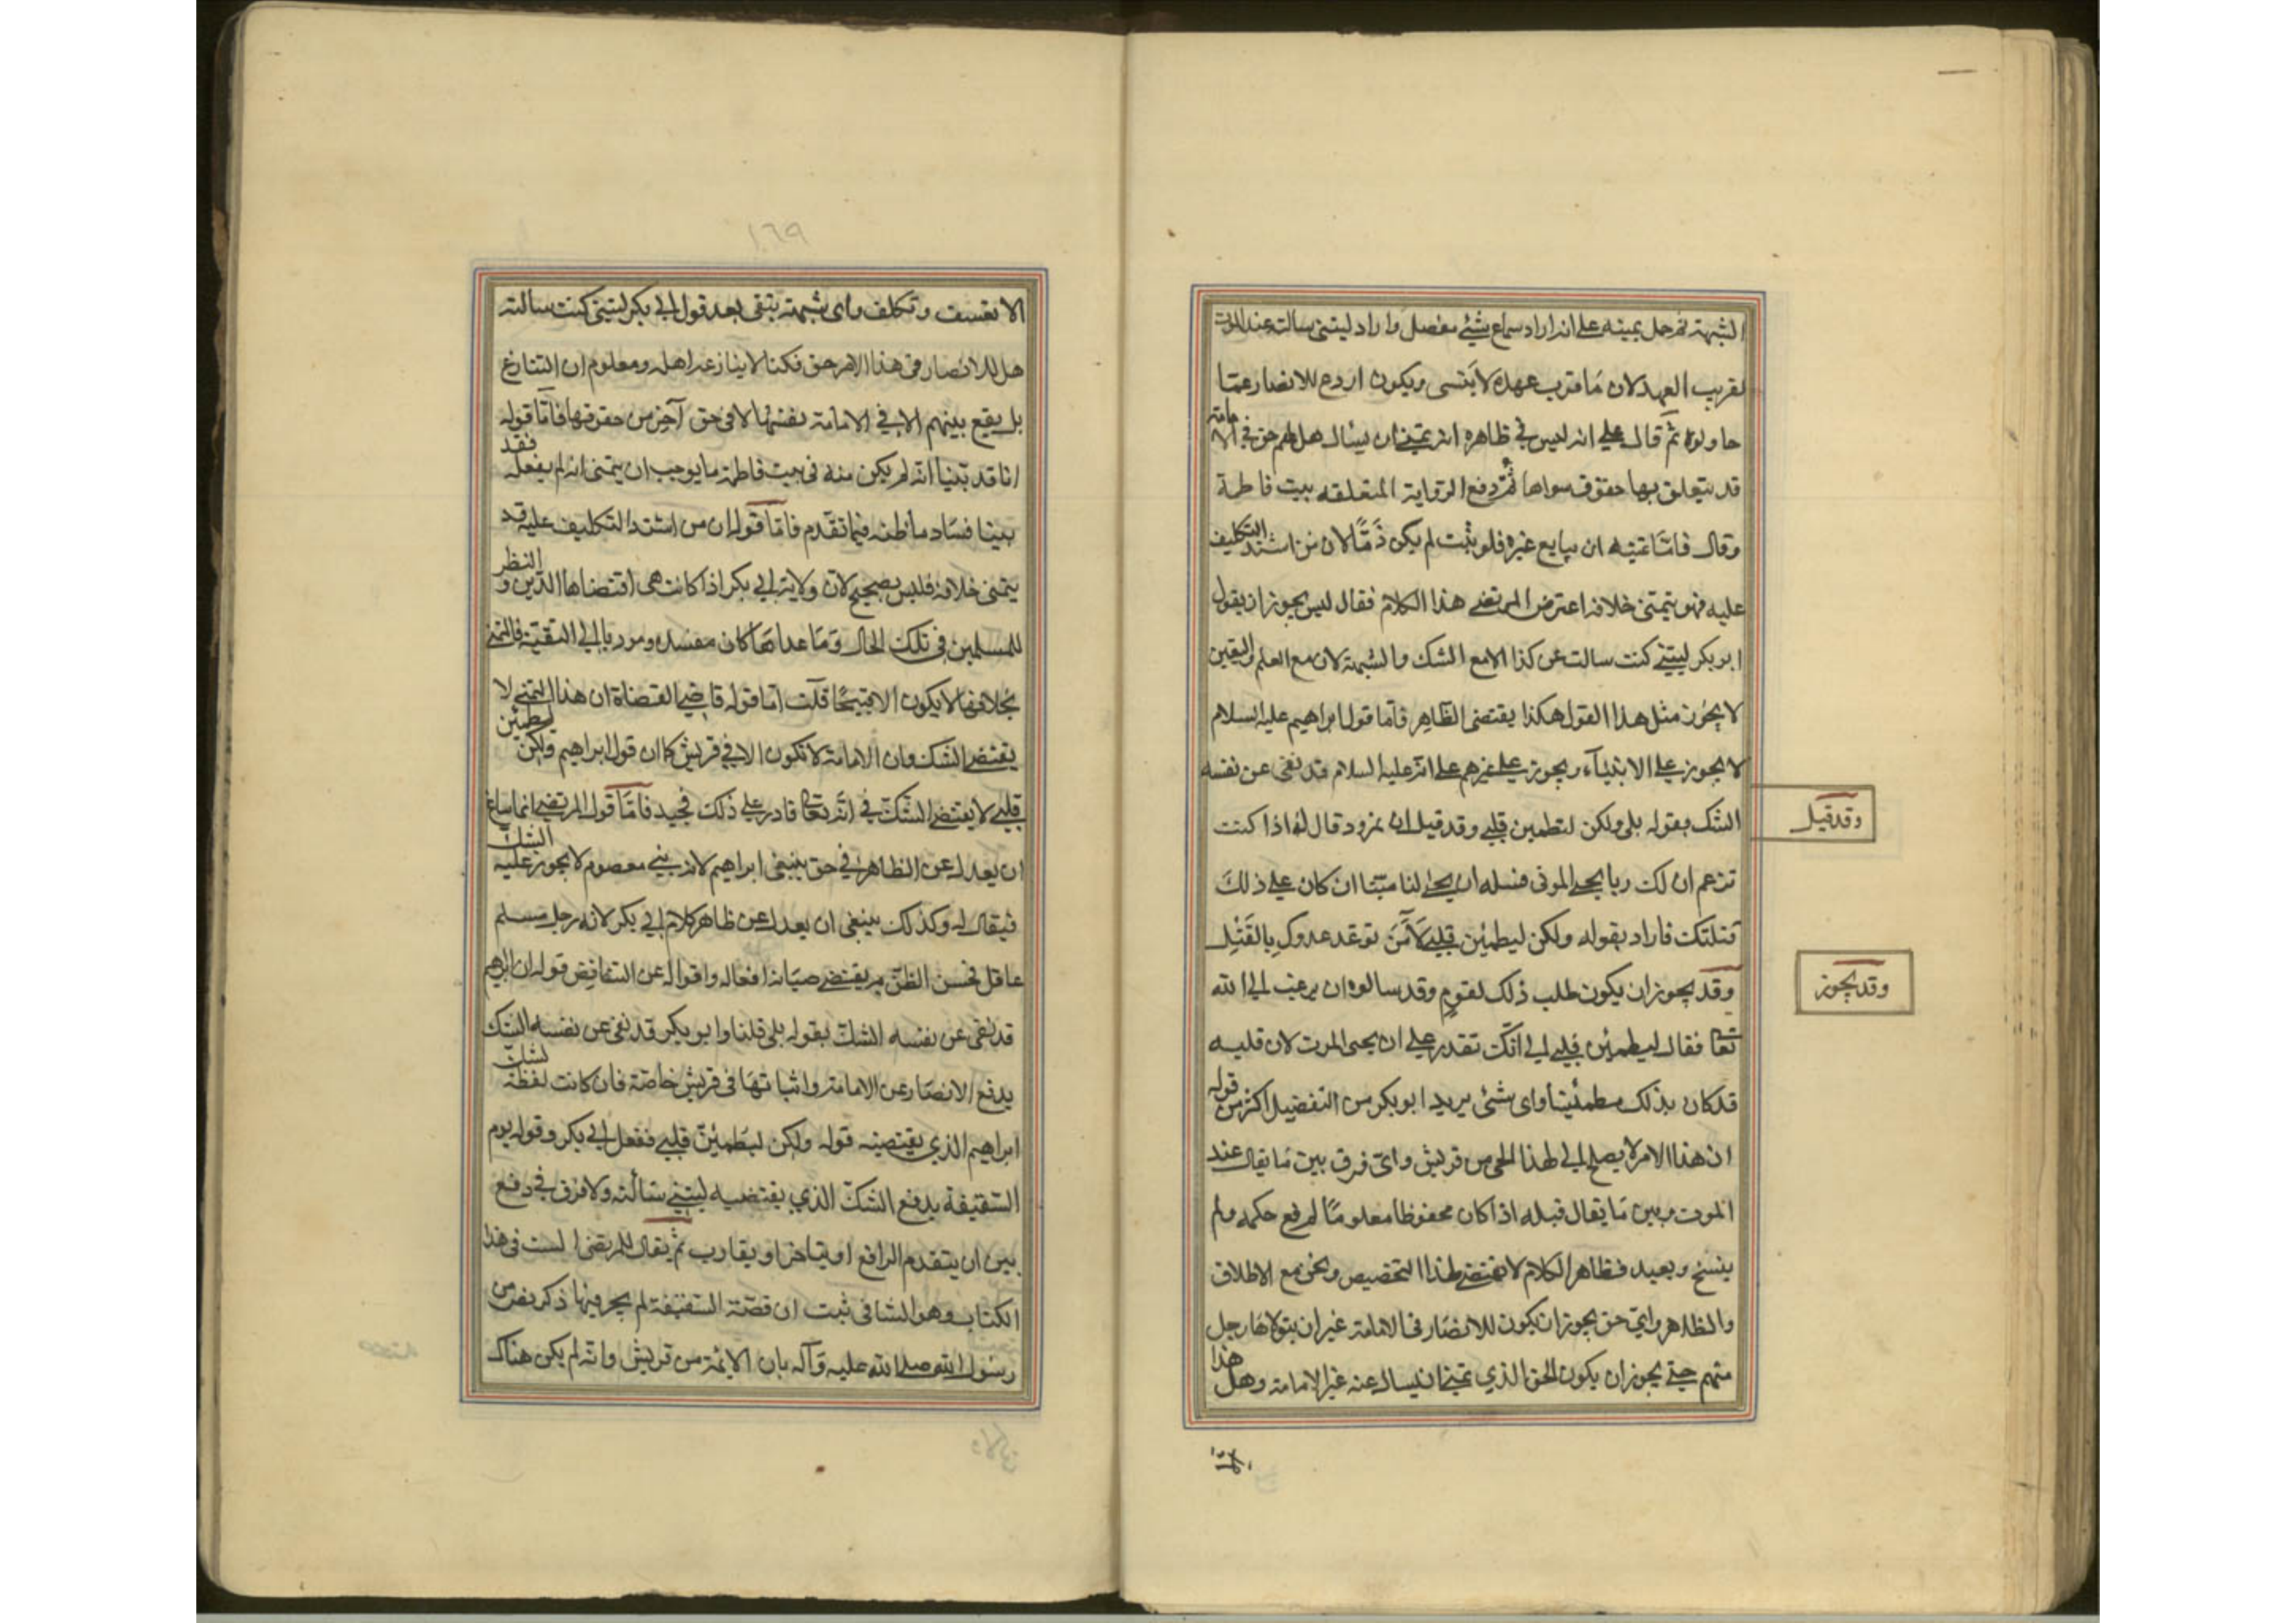 الشبهة ثم حمل تمنيه على انه اراد سماع شيئ مفصل واراد ليتنى سالته عند الموت
لقرب العهد لان ما قرب عهده لا ينسى ويكون اردع للانصار عما
حاولوه ثم قال على انه ليس في ظاهره انه تمنى ان يسال هل لهم حق في الامامة
قد يتعلق بها حقوق سواها ثم دفع الرواية المتعلقه ببيت فاطمة
وقال فاما تمنيه ان يبايع غيره فلو ثبت لم يكن ذمًّا لان من اشتد التكليف
عليه فهو يتمنى خلافه اعترض المرتضى هذا الكلام فقال ليس يجوز ان يقول
ابو بكر ليتني كنت سالت عن كذا الا مع الشك والشبهة لان مع العلم واليقين
لا يجوز مثل هذا القول هكذا يقتضى الظاهر فاما قول ابراهيم عليه السلام
لا يجوز على الانبيآء ويجوز على غيرهم على انه عليه السلام قد نفى عن نفسه
الشك بقوله بلى ولكن ليطمين قلبي وقد قيل ان نمرود قال له اذا كنت
وقد قيل
تزعم ان لك ربا يحيى الموتى فسله ان يحيى لنا ميتا ان كان على ذلك
قتلتك فاراد بقوله ولكن ليطمئن قلبي لآمن توعد عدوك بالقتل
وقد يجوز ان يكون طلب ذلك لقوم وقد سالوه ان يرغب الى الله
وقد يجوز
تعا فقال ليطمئن قلبي الى انك تقدر على ان يحيى الموت لان قلبه
قد كان بذلك مطمئنا واى شئى يريد ابو بكر من التفضيل اكثر من قوله
ان هذا الامر لا يصلح الى لهذا الحى من قريش واى فرق بين ما يقال عند
الموت وبين ما يقال قبله اذا كان محفوظا معلومًا لم رفع حكمه ولم
ينسخ وبعيد فظاهر الكلام لا يقتضى لهذا التخصيص ونحن مع الاطلاق
والظاهر واي حق يجوز ان يكون للانصار فى الامامة غير ان يتولاها رجل
منهم حتى يجوز ان يكون الحق الذي تمنى ان يسال عنه غير الامامة وهل هذا
١٦٩
الا تعسف وتكلف واى شبهة يبقى بعد قول ابي بكر ليتنى كنت سالته
هل للانصار في هذا الامر حق فكنا لا ينازعه اهله ومعلوم ان التنازع
بل يقع بينهم الا في الامامة نفسها لا في حق آخر من حقوقها فاما قوله
انا قد بينا انه لم يكن منه فى بيت فاطمة ما يوجب ان يتمنى انه لم يفعله فقد
بينا فساد ما ظنه فيما تقدم فاما قوله ان من اشتد التكليف عليه قد
يتمنى خلافه فليس بصحيح لان ولاية ابي بكر اذا كانت هى اقتضاها الدين و النظر
للمسلمين فى تلك الحال وما عداها كان مفسده ومودبا الى التقية فالتمنى
بخلافها لا يكون الا قبيحًا قلت اما قوله قاضي القضاة ان هذا التمنى لا
يقتضى الشك وان الامامة لا تكون الا في قريش كما ان قول ابراهيم ولكن ليطمئن
قلبي لا يقتضى الشك في انه تعا قادر على ذلك فجيد فاما قول المرتضى انما ساغ
ان يعدل عن الظاهر في حق ابراهيم لانه نبي معصوم لا يجوز عليه الشك
فيقال له وكذلك ينبغى ان يعدل عن ظاهر كلام ابي بكر لانه رجل مسلم
عاقل فحسن الظن به يقتضى صيانة افعاله واقواله عن التناقض قوله ان ابراهيم
قد نفى عن نفسه الشك بقوله بلى قلنا وابو بكر قد نفى عن نفسه الشك
يدفع الانصار عن الامامة واثباتها فى قريش خاصة فان كانت لفظة لشك
ابراهيم الذي يقتضيه قوله ولكن ليطمئن قلبي ففعل ابي بكر وقوله يوم
السقيفة يدفع الشك الذي يقتضيه ليتني سألته ولا فرق في دفع
بين ان يتقدم الرافع او يتاخر او يقارب ثم يقال للمرتضى الست فى هذا
الكتاب وهو الشافى ثبت ان قصة السقيفة لم يجر فيها ذكر نص من
رسول الله صلى الله عليه وآله بان الائمة من قريش وانه لم يكن هناك